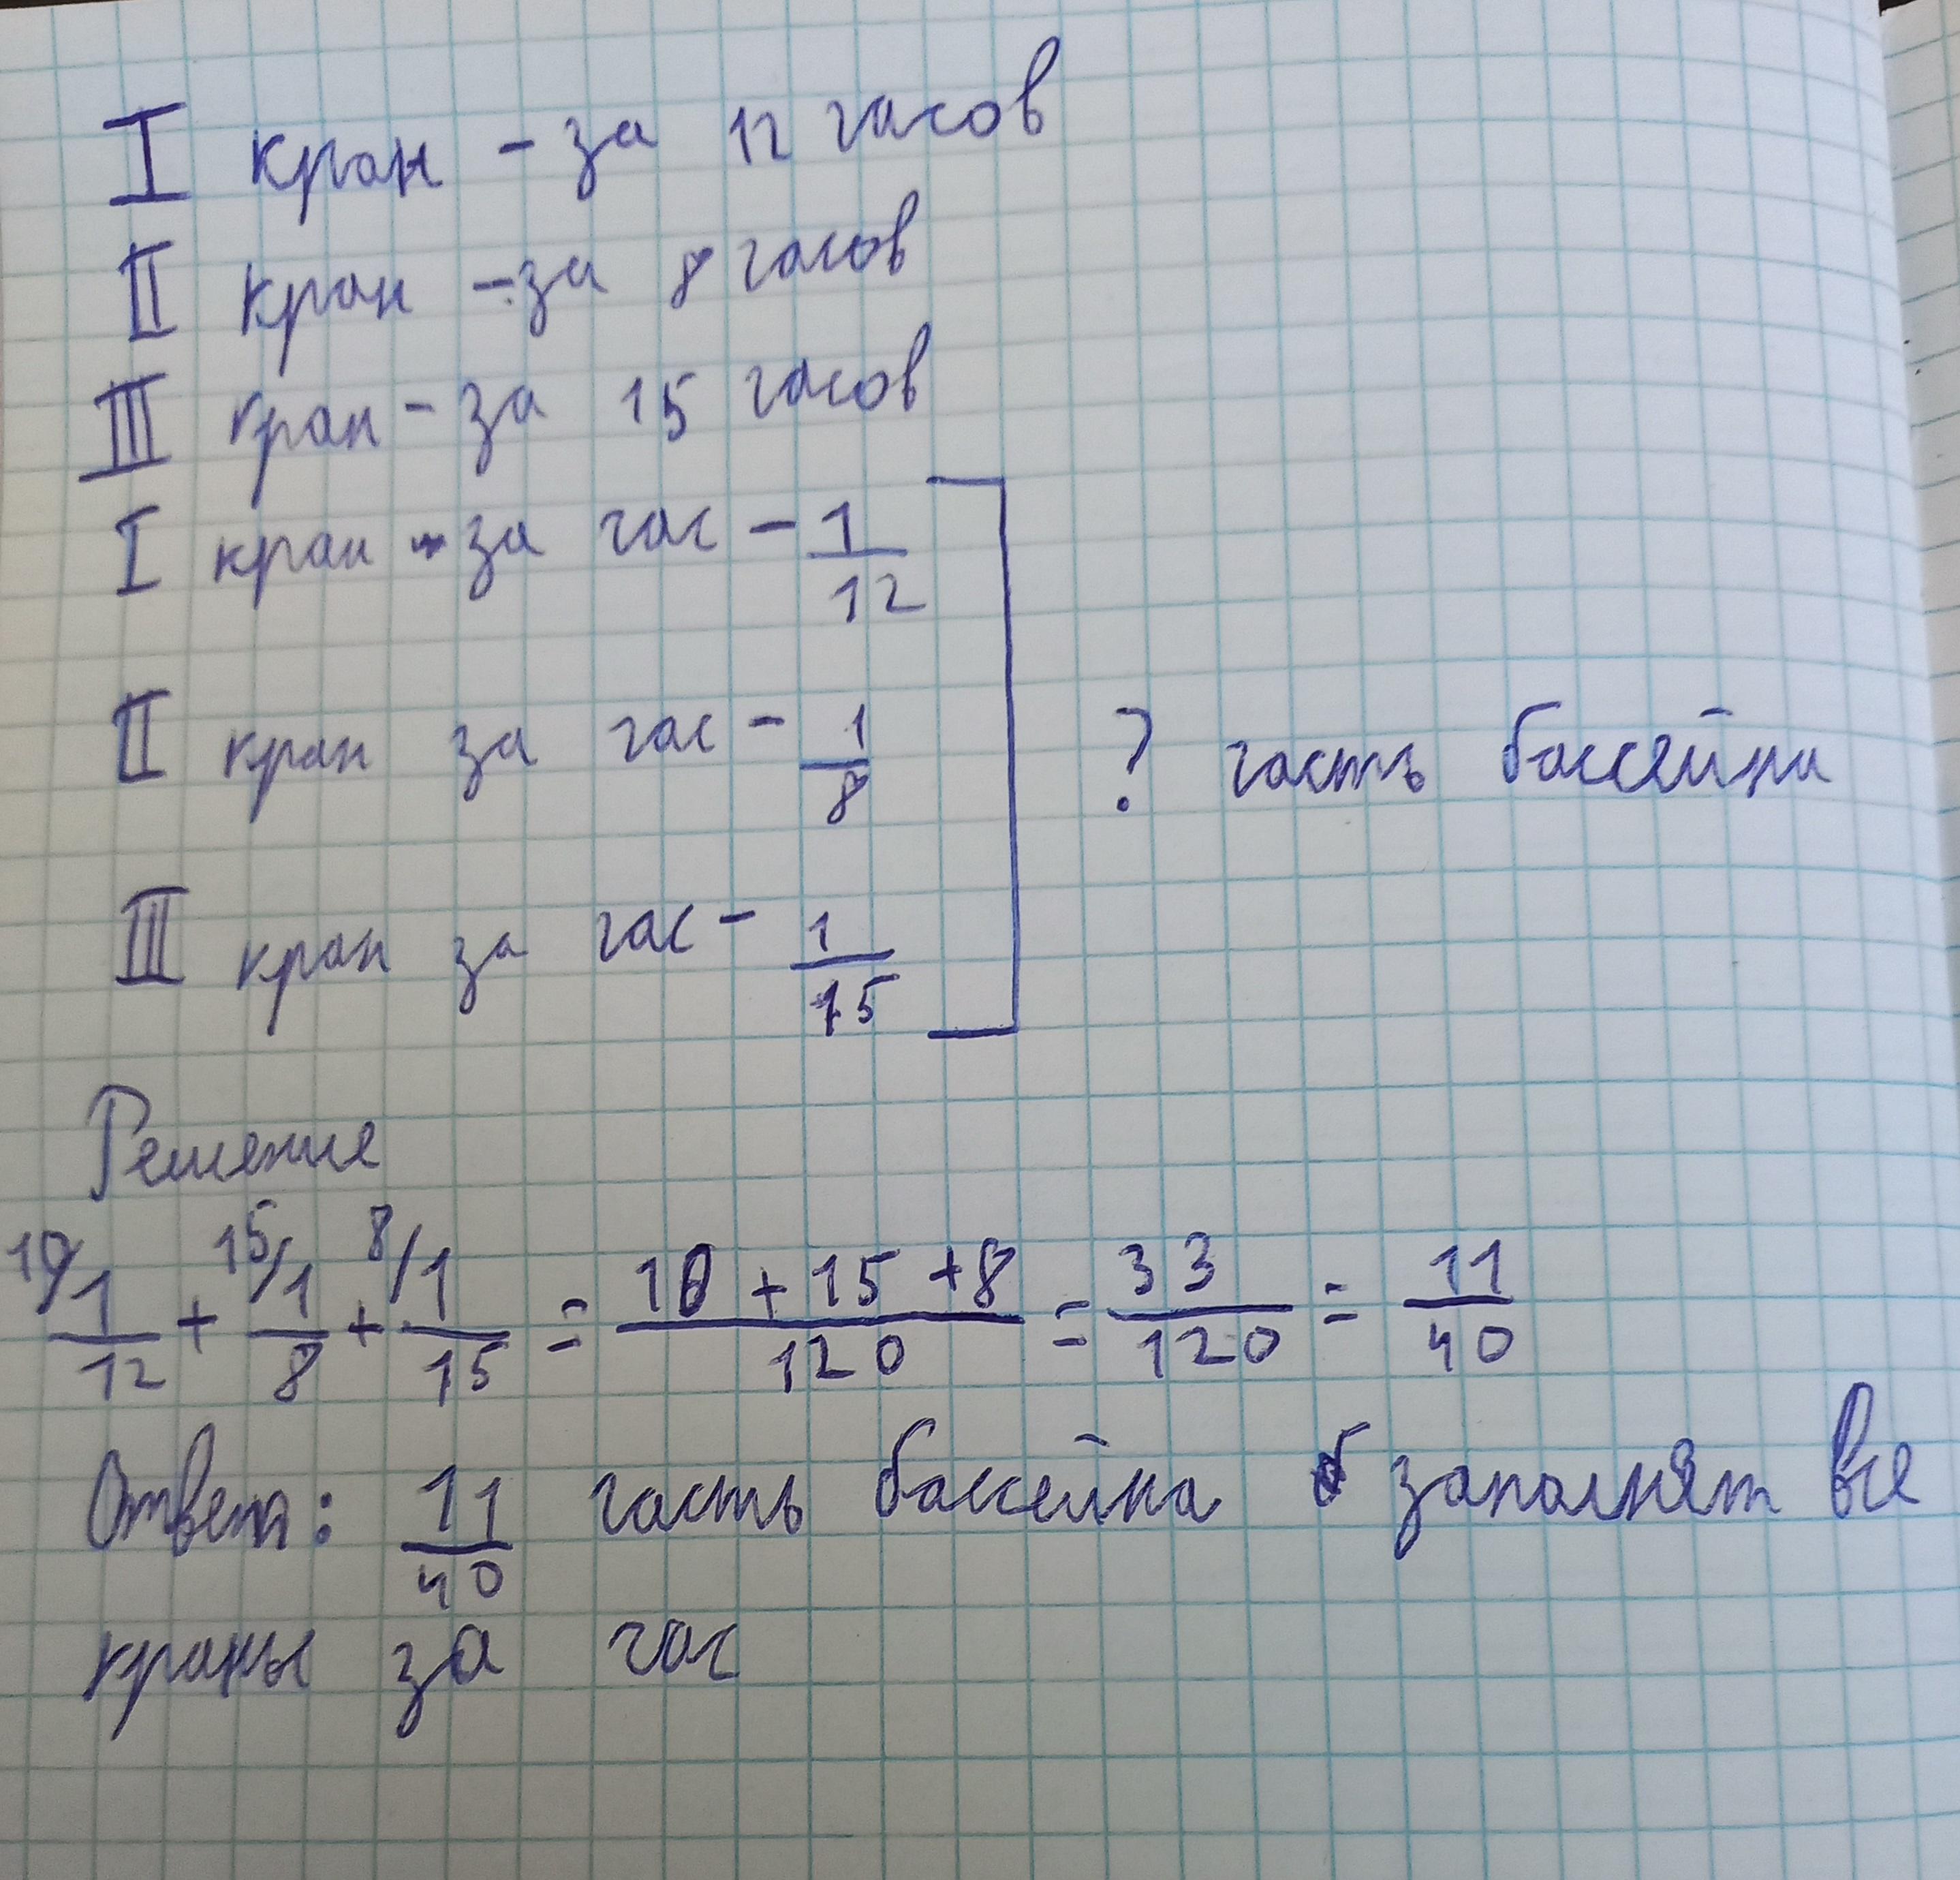 I кран - за 12 часов
II кран - за 8 часов
III кран - за 15 часов
I кран - за час - 1/12
II кран за час - 1/8
? часть бассейна
III кран за час - 1/15
Решение
10/ 1/12 + 15/ 1/8 + 8/ 1/15 = 10 + 15 + 8 / 120 = 33/120 = 11/40
Ответ: 11/40 часть бассейна заполнят все
краны за час